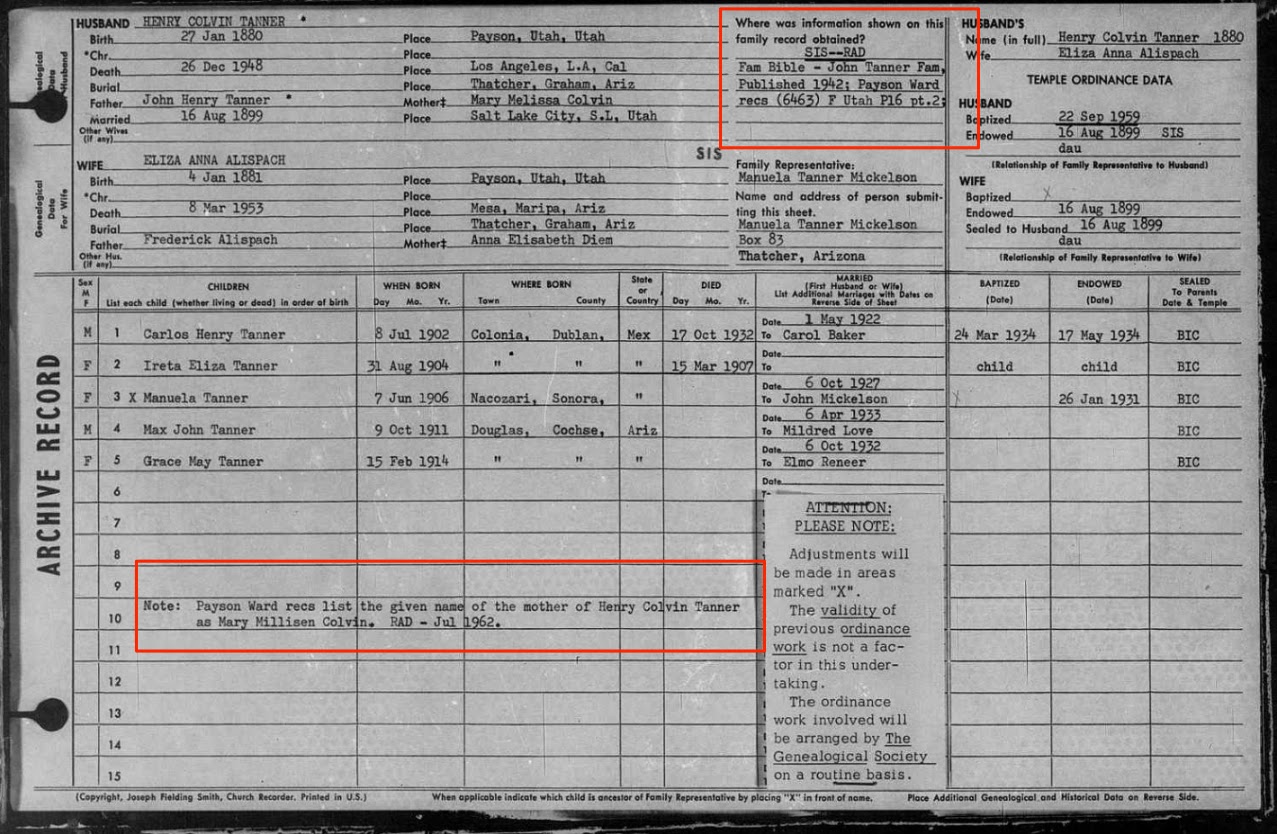 HUSBAND HENRY COLVIN TANNER *
Birth 27 Jan 1880 Place Payson, Utah, Utah
*Chr. Place
Death 26 Dec 1948 Place Los Angeles, L.A, Cal
Burial Place Thatcher, Graham, Ariz
Father John Henry Tanner * Mother‡ Mary Melissa Colvin
Married 16 Aug 1899 Place Salt Lake City, S.L, Utah
Other Wives
(if any)
Where was information shown on this
family record obtained?
SIS--RAD
Fam Bible - John Tanner Fam,
Published 1942; Payson Ward
recs (6463) F Utah P16 pt.2;
HUSBAND'S
Name (in full) Henry Colvin Tanner 1880
Wife Eliza Anna Alispach
TEMPLE ORDINANCE DATA
HUSBAND
Baptized 22 Sep 1959
Endowed 16 Aug 1899 SIS
dau
(Relationship of Family Representative to Husband)
SIS
WIFE ELIZA ANNA ALISPACH
Birth 4 Jan 1881 Place Payson, Utah, Utah
*Chr. Place
Death 8 Mar 1953 Place Mesa, Maripa, Ariz
Burial Place Thatcher, Graham, Ariz
Father Frederick Alispach Mother‡ Anna Elisabeth Diem
Other Hus.
(if any)
Family Representative:
Manuela Tanner Mickelson
Name and address of person submit-
ting this sheet.
Manuela Tanner Mickelson
Box 83
Thatcher, Arizona
WIFE
Baptized X
Endowed 16 Aug 1899
Sealed to Husband 16 Aug 1899
dau
(Relationship of Family Representative to Wife)
Genealogical
Data
For Wife
ARCHIVE RECORD
Sex M F
CHILDREN
List each child (whether living or dead) in order of birth
WHEN BORN
Day Mo. Yr.
WHERE BORN
Town County
State or Country
DIED
Day Mo. Yr.
MARRIED
(First Husband or Wife)
List Additional Marriages with Dates on
Reverse Side of Sheet
BAPTIZED
(Date)
ENDOWED
(Date)
SEALED
To Parents
Date & Temple
Date 1 May 1922
M 1 Carlos Henry Tanner 8 Jul 1902 Colonia, Dublan, Mex 17 Oct 1932 To Carol Baker 24 Mar 1934 17 May 1934 BIC
Date
F 2 Ireta Eliza Tanner 31 Aug 1904 " " " 15 Mar 1907 To child child BIC
Date 6 Oct 1927
F 3 X Manuela Tanner 7 Jun 1906 Nacozari, Sonora, " To John Mickelson X 26 Jan 1931 BIC
Date 6 Apr 1933
M 4 Max John Tanner 9 Oct 1911 Douglas, Cochse, Ariz To Mildred Love BIC
Date 6 Oct 1932
F 5 Grace May Tanner 15 Feb 1914 " " " To Elmo Reneer BIC
Date
6
7
8
9
10
Note: Payson Ward recs list the given name of the mother of Henry Colvin Tanner
as Mary Millisen Colvin. RAD - Jul 1962.
11
12
13
14
15
ATTENTION:
PLEASE NOTE:
Adjustments will
be made in areas
marked "X".
The validity of
previous ordinance
work is not a fac-
tor in this under-
taking.
The ordinance
work involved will
be arranged by The
Genealogical Society
on a routine basis.
(Copyright, Joseph Fielding Smith, Church Recorder. Printed in U.S.) When applicable indicate which child is ancestor of Family Representative by placing "X" in front of name. Place Additional Genealogical and Historical Data on Reverse Side.